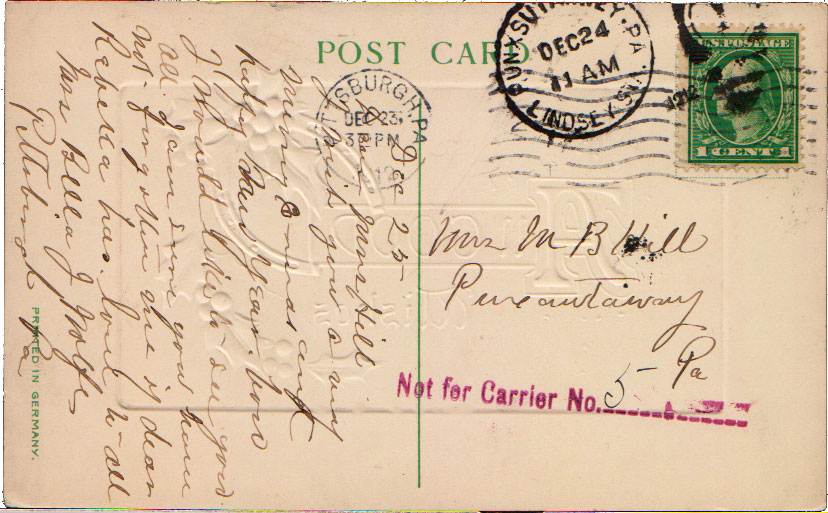 POST CARD
PUNXSUTAWNEY, PA.
DEC 24
11 AM
LINDSEY STA.
PITTSBURGH, PA.
DEC 23
3 30 PM
1912
U.S. POSTAGE
1 CENT 1
Dec 25
Dear Mrs Hill
I wish you a very
Merry Xmas and
happy New Year. how
I Would like to see you
all I am sure you have
not forgotten me if dear
Rebella has. love to all
Mrs Bella J Wolfe
Pittsburgh Pa
Mrs M B Hill
Punxautaway
Pa
Not for Carrier No. 5
PRINTED IN GERMANY.